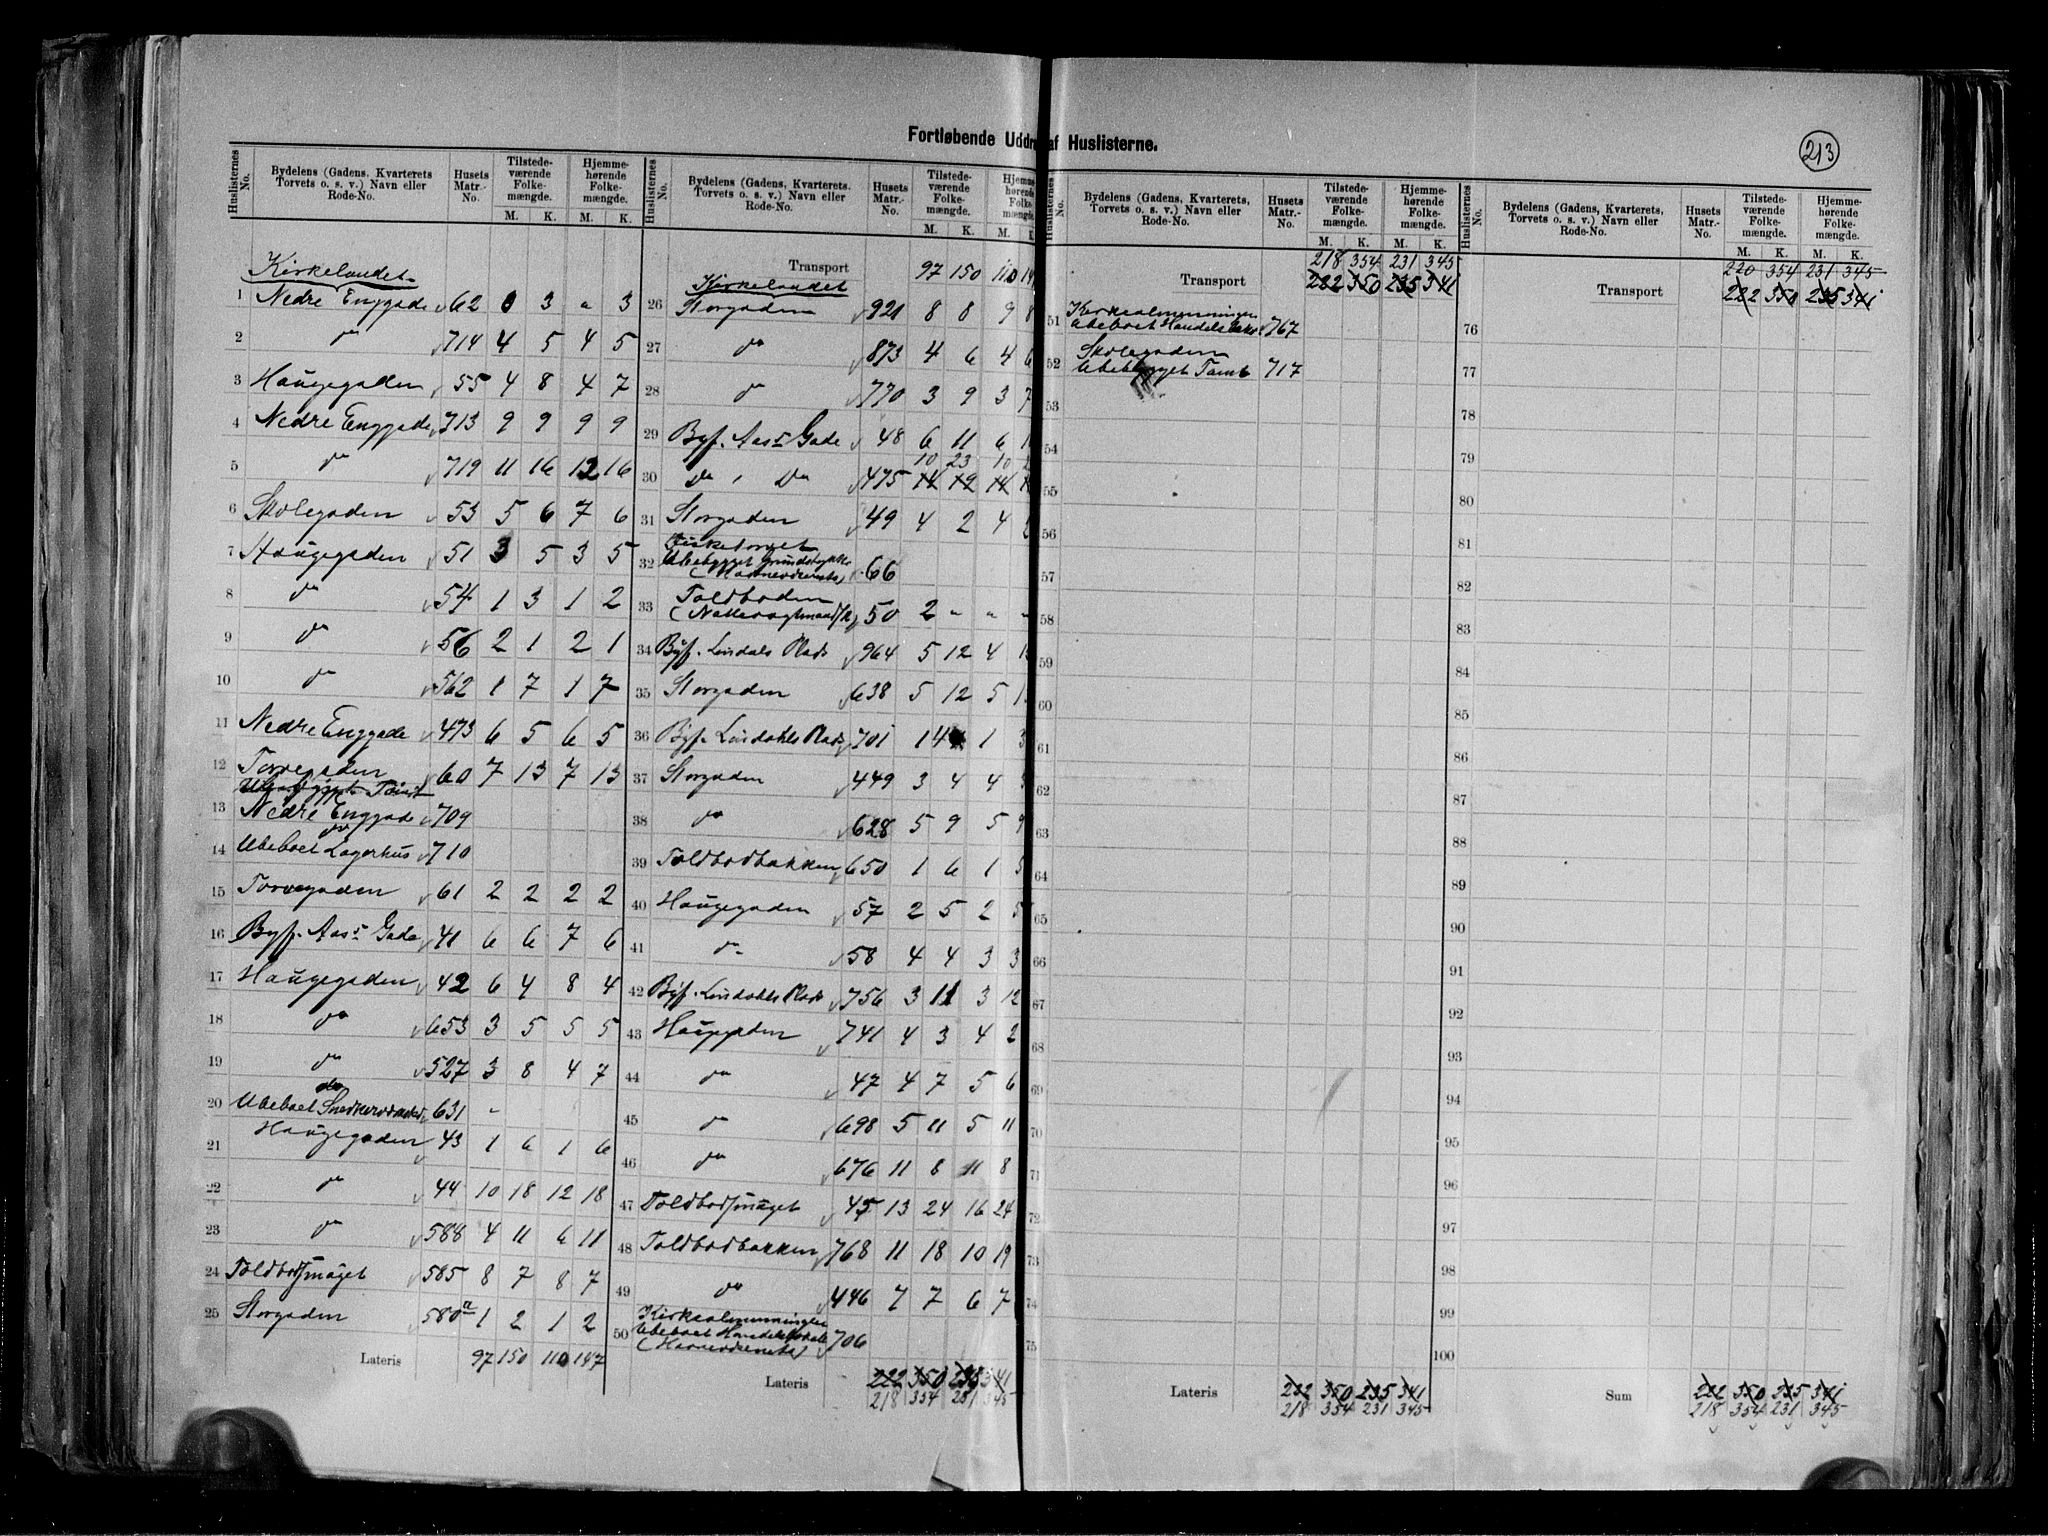 Fortløbende Uddr af Huslisterne.
213
Huslisternes No. Bydelens (Gadens, Kvarterets Torvets o. s. v.) Navn eller Rode-No. Husets Matr.-No. Tilstedeværende Folkemængde. M. K. Hjemmehørende Folkemængde. M. K.
Kirkelandet
1 Nedre Enggade 62 0 3 " 3
2 do 714 4 5 4 5
3 Haugegaden 55 4 8 4 7
4 Nedre Enggade 713 9 9 9 9
5 do 719 11 16 12 16
6 Skolegaden 53 5 6 7 6
7 Haugegaden 51 3 5 3 5
8 do 54 1 3 1 2
9 do 56 2 1 2 1
10 do 562 1 7 1 7
11 Nedre Enggade 473 6 5 6 5
12 Torvegaden 60 7 13 7 13
Ubebygget Tomt
13 Nedre Enggade 709
do
14 Ubeboet Lagerhus 710
15 Torvegaden 61 2 2 2 2
16 Byf. Aas's Gade 41 6 6 7 6
17 Haugegaden 42 6 4 8 4
18 do 653 3 5 5 5
19 do 527 3 8 4 7
do
20 Ubeboet 631 "
21 Haugegaden 43 1 6 1 6
22 do 44 10 18 12 18
23 do 588 4 11 6 11
24 Toldbodsmuget 585 8 7 8 7
25 Storgaden 580a 1 2 1 2
Lateris 97 150 110 147
Huslisternes No. Bydelens (Gadens, Kvarterets, Torvets o. s. v.) Navn eller Rode-No. Husets Matr.-No. Tilstedeværende Folkemængde. M. K. Hjemmehørende Folkemængde. M. K.
Transport 97 150 110 14
Kirkelandet
26 Storgaden 921 8 8 9 8
27 do 873 4 6 4 6
28 do 770 3 9 3 7
29 Byf. Aas's Gade 48 6 11 6 1
10 23 10 2
30 Do , Do 475 14 19 14 1
31 Storgaden 49 4 2 4
Fisketorvet
32 Ubebygget Grundstykke 66
(Havnevæsenets)
33 Toldboden
(Nattevagtmand) 50 2 " " "
34 Byf. Lindals Plads 964 5 12 4 1
35 Storgaden 638 5 12 5 1
36 Byf. Lindahls Plads 701 1 4 1 3
37 Storgaden 449 3 4 4
38 do 628 5 9 5 9
39 Toldbodbakken 650 1 6 1 5
40 Haugegaden 57 2 5 2 5
41 do 58 4 4 3 3
42 Byf. Lindahls Plads 756 3 11 3 12
43 Haugegaden 741 4 3 4 2
44 do 47 4 7 5 6
45 do 698 5 11 5 11
46 do 676 11 8 11 8
47 Toldbodsmuget 45 13 24 16 24
48 Toldbodbakken 768 11 18 10 19
49 do 446 7 7 6 7
Kirkealmenningen
50 Ubeboet Handelslokale 706
(Havnevæsenets)
Lateris 222 350 235 341
218 354 231 345
Huslisternes No. Bydelens (Gadens, Kvarterets, Torvets o. s. v.) Navn eller Rode-No. Husets Matr.-No. Tilstedeværende Folkemængde. M. K. Hjemmehørende Folkemængde. M. K.
218 354 231 345
Transport 222 350 235 341
Kirkealmenningen
51 Ubeboet 767
Skolegaden
52 Ubebygget Tomt 717
53
54
55
56
57
58
59
60
61
62
63
64
65
66
67
68
69
70
71
72
73
74
75
Lateris 222 350 235 341
218 354 231 345
Huslisternes No. Bydelens (Gadens, Kvarterets, Torvets o. s. v.) Navn eller Rode-No. Husets Matr.-No. Tilstedeværende Folkemængde. M. K. Hjemmehørende Folkemængde. M. K.
220 354 231 345
Transport 222 350 235 341
76
77
78
79
80
81
82
83
84
85
86
87
88
89
90
91
92
93
94
95
96
97
98
99
100
Sum 222 350 235 341
218 354 231 345